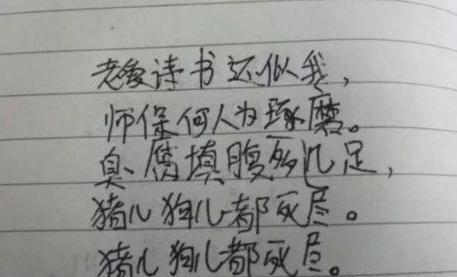 老爱诗书还似我，
师保何人为琢磨。
臭腐填腹几足，
猪儿狗儿都死尽。
猪儿狗儿都死尽。